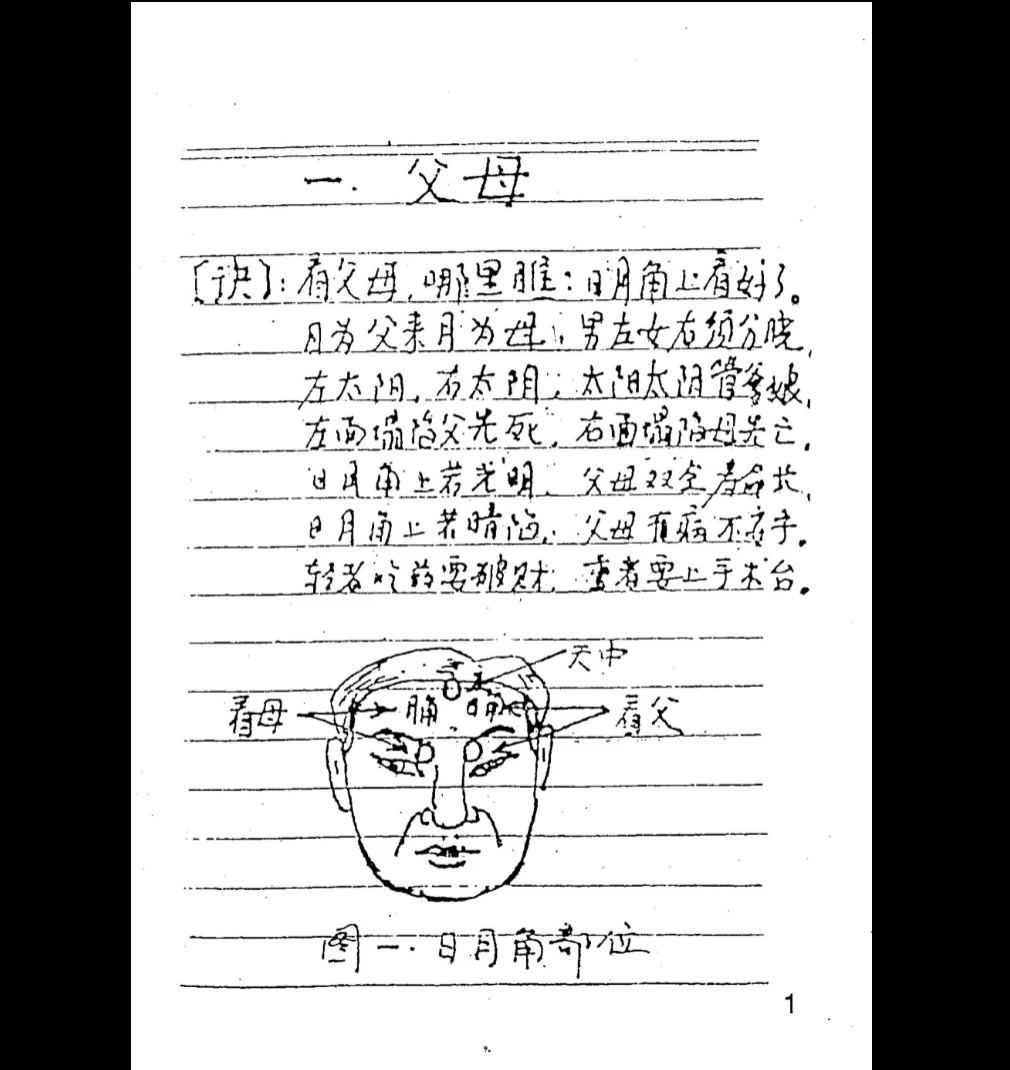 一. 父母
[诀]: 看父母,哪里瞧:日月角上看好了。
日为父来月为母;男左女右须分晓,
左太阳,右太阴;太阳太阴管爹娘,
左面塌陷父先死,右面塌陷母先亡,
日月角上若光明,父母双全寿命长,
日月角上若暗陷,父母有病不在手。
轻者吃药要破财,重者要上手术台。
天中
看母 月角 日角 看父
图一.日月角部位
1